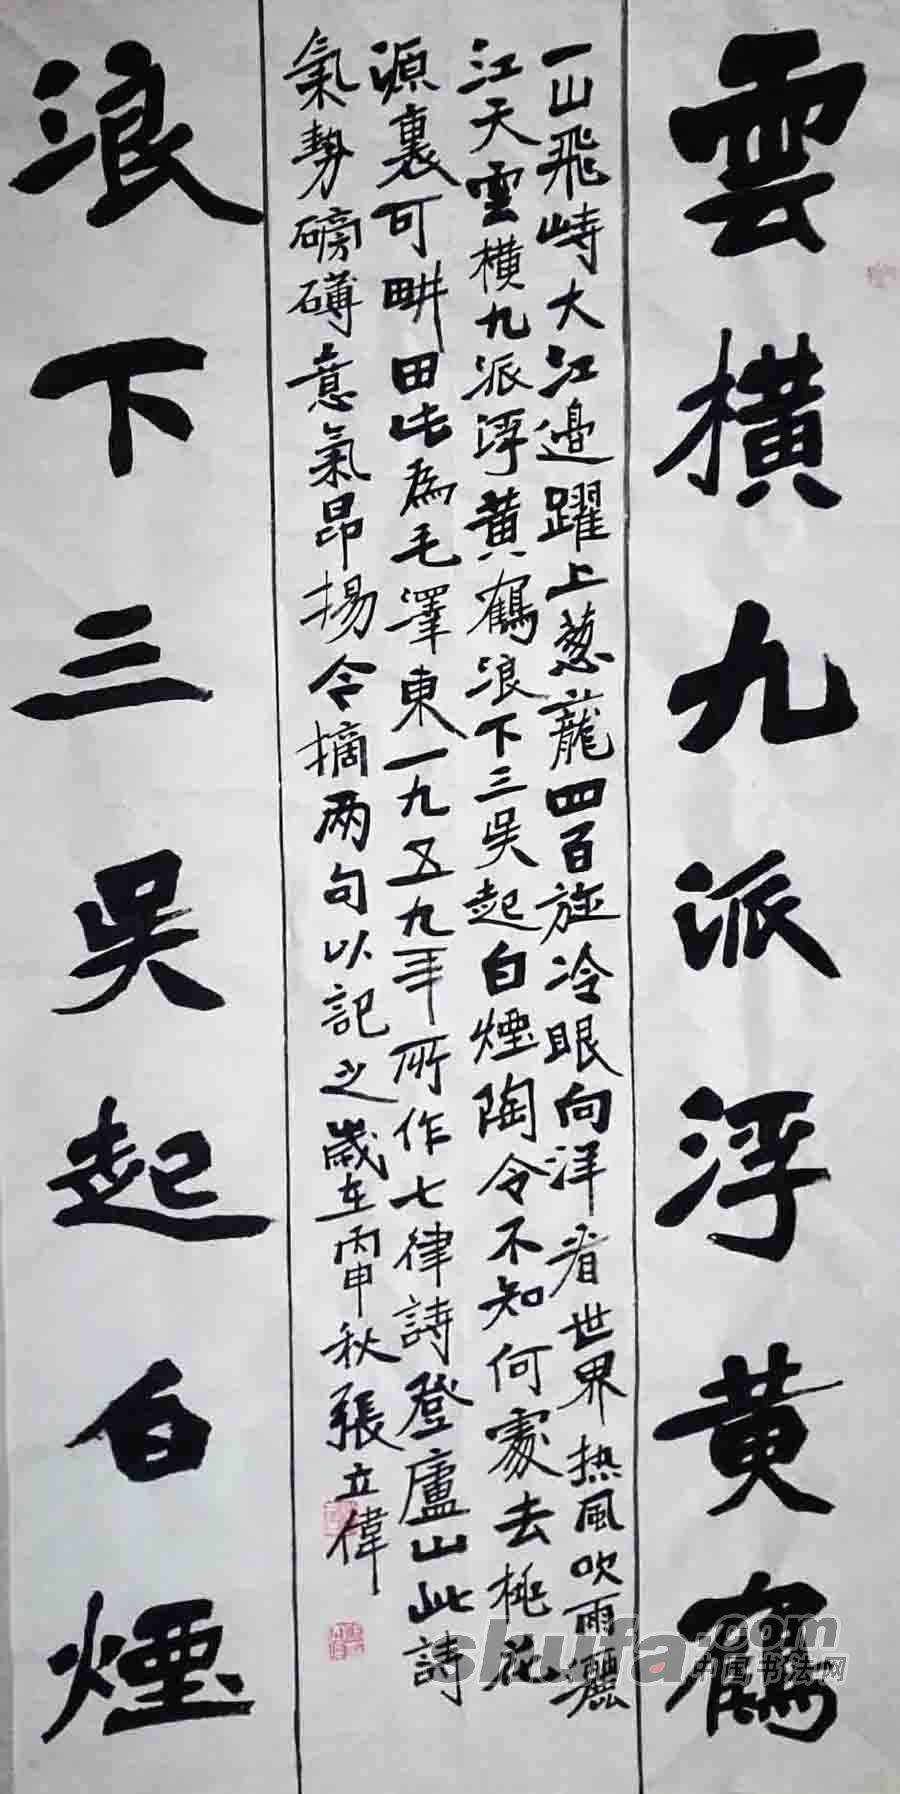 雲橫九派浮黄鶴
一山飛峙大江邉躍上葱蘢四百旋冷眼向洋看世界热風吹雨灑
江天雲橫九派浮黄鶴浪下三吳起白煙陶令不知何處去桃花
源裏可畊田此為毛澤東一九五九年所作七律詩登廬山此詩
氣勢磅礴意氣昂揚今摘两句以記之歲在丙申秋張立偉
浪下三吳起白煙
shufa.com
中国书法网